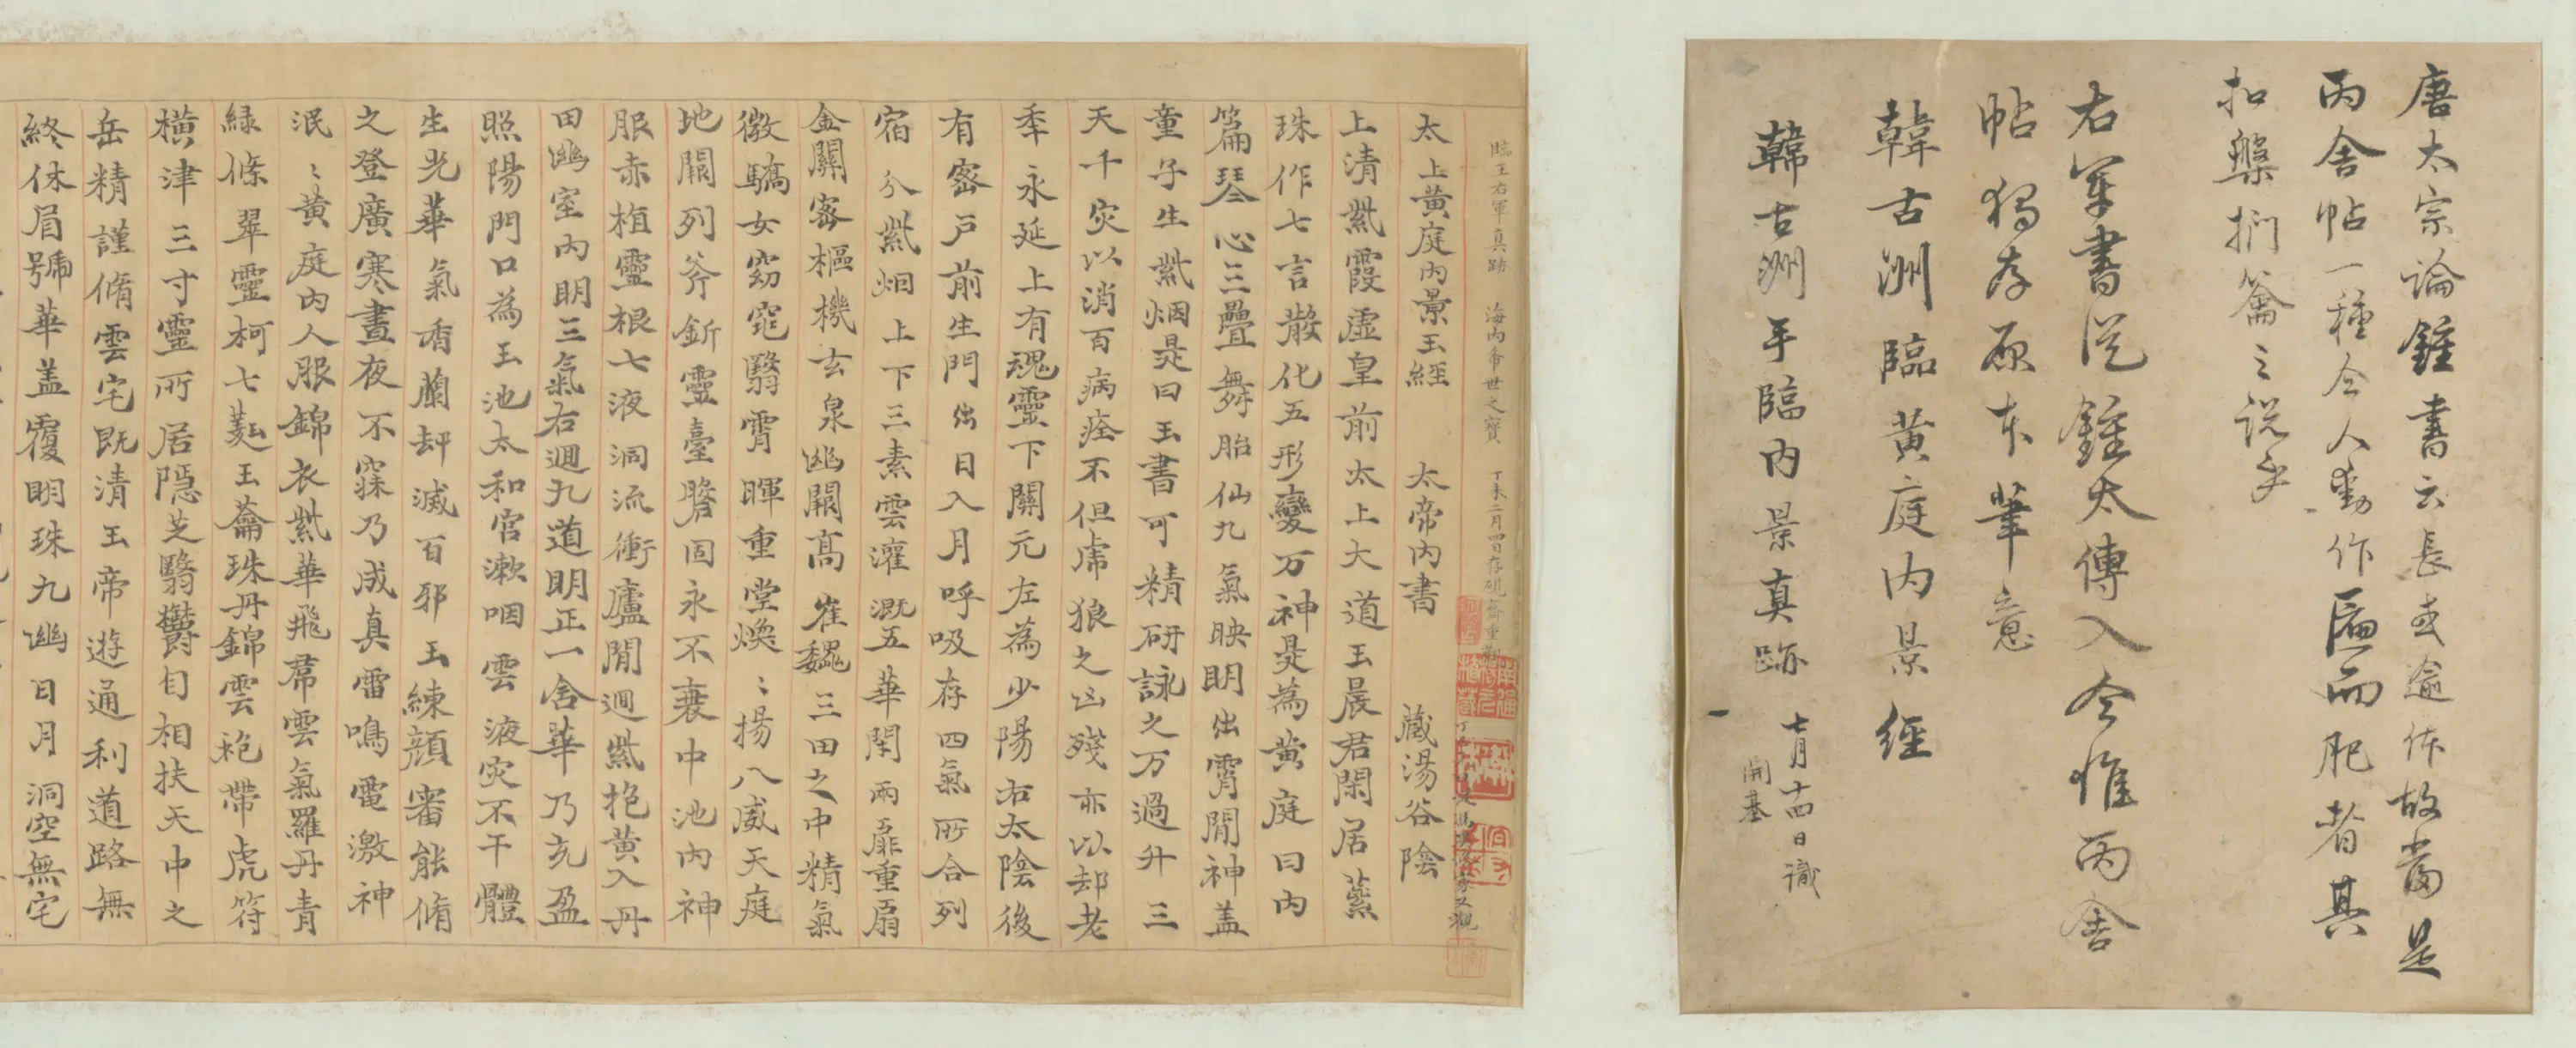 唐太宗論鍾書云長或逾作故當是
丙舍帖一種今人動作匾而肥者其
扣槃捫籥之說乎
右軍書從鍾太傅入今惟丙舍
帖獨存原本筆意
韓古洲臨黃庭內景經
韓古洲手臨內景真跡
七月十四日識
開基
臨王右軍真跡 海內希世之寶 丁未二月四日存硯齋重
太上黃庭內景玉經 太帝內書 藏湯谷陰
上清紫霞虛皇前太上大道玉晨君閑居蘂
珠作七言散化五形變万神是為黃庭曰內
篇琴心三疊舞胎仙九氣映明出霄間神盖
童子生紫烟是曰玉書可精研詠之万過升三
天千灾以消百病痊不但虎狼之凶殘亦以却老
秊永延上有魂靈下關元左為少陽右太陰後
有密戶前生門出日入月呼吸存四氣所合列
宿分紫烟上下三素雲灌溉五華閑兩扉重扇
金關密樞機玄泉幽闕高崔巍三田之中精氣
微驕女窈窕翳霄暉重堂煥〻揚八威天庭
地關列斧斨靈臺膽固永不衰中池內神
服赤植靈根七液洞流衝廬間迴紫抱黃入丹
田幽室內明三氣右迴九道明正一舍華乃充盈
照陽門口為玉池太和官漱咽雲液灾不干體
生光華氣香蘭却滅百邪玉練顏審能脩
之登廣寒晝夜不寐乃成真雷鳴電激神
泯〻黃庭內人服錦衣紫華飛帬雲氣羅丹青
綠條翠靈柯七蕤玉蘥珠丹錦雲袍帶虎符
橫津三寸靈所居隱芝翳欝自相扶天中之
岳精謹脩雲宅既清玉帝遊通利道路無
終休眉號華盖覆明珠九幽日月洞空無宅